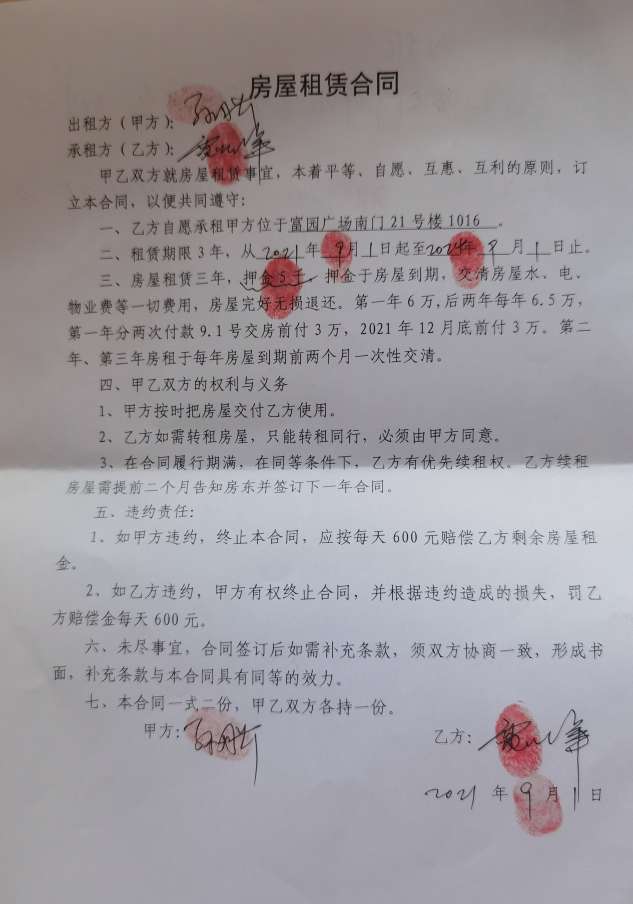 房屋租赁合同
出租方（甲方）：
承租方（乙方）：
甲乙双方就房屋租赁事宜，本着平等、自愿、互惠、互利的原则，订
立本合同，以便共同遵守：
一、乙方自愿承租甲方位于富园广场南门21号楼1016。
二、租赁期限3年，从2021年9月1日起至2024年9月1日止。
三、房屋租赁三年，押金5千，押金于房屋到期，交清房屋水、电、
物业费等一切费用，房屋完好无损退还。第一年6万，后两年每年6.5万，
第一年分两次付款9.1号交房前付3万，2021年12月底前付3万。第二
年、第三年房租于每年房屋到期前两个月一次性交清。
四、甲乙双方的权利与义务
1、甲方按时把房屋交付乙方使用。
2、乙方如需转租房屋，只能转租同行，必须由甲方同意。
3、在合同履行期满，在同等条件下，乙方有优先续租权。乙方续租
房屋需提前二个月告知房东并签订下一年合同。
五、违约责任：
1、如甲方违约，终止本合同，应按每天600元赔偿乙方剩余房屋租
金。
2、如乙方违约，甲方有权终止合同，并根据违约造成的损失，罚乙
方赔偿金每天600元。
六、未尽事宜，合同签订后如需补充条款，须双方协商一致，形成书
面，补充条款与本合同具有同等的效力。
七、本合同一式二份，甲乙双方各持一份。
甲方：
乙方：
2021年9月1日